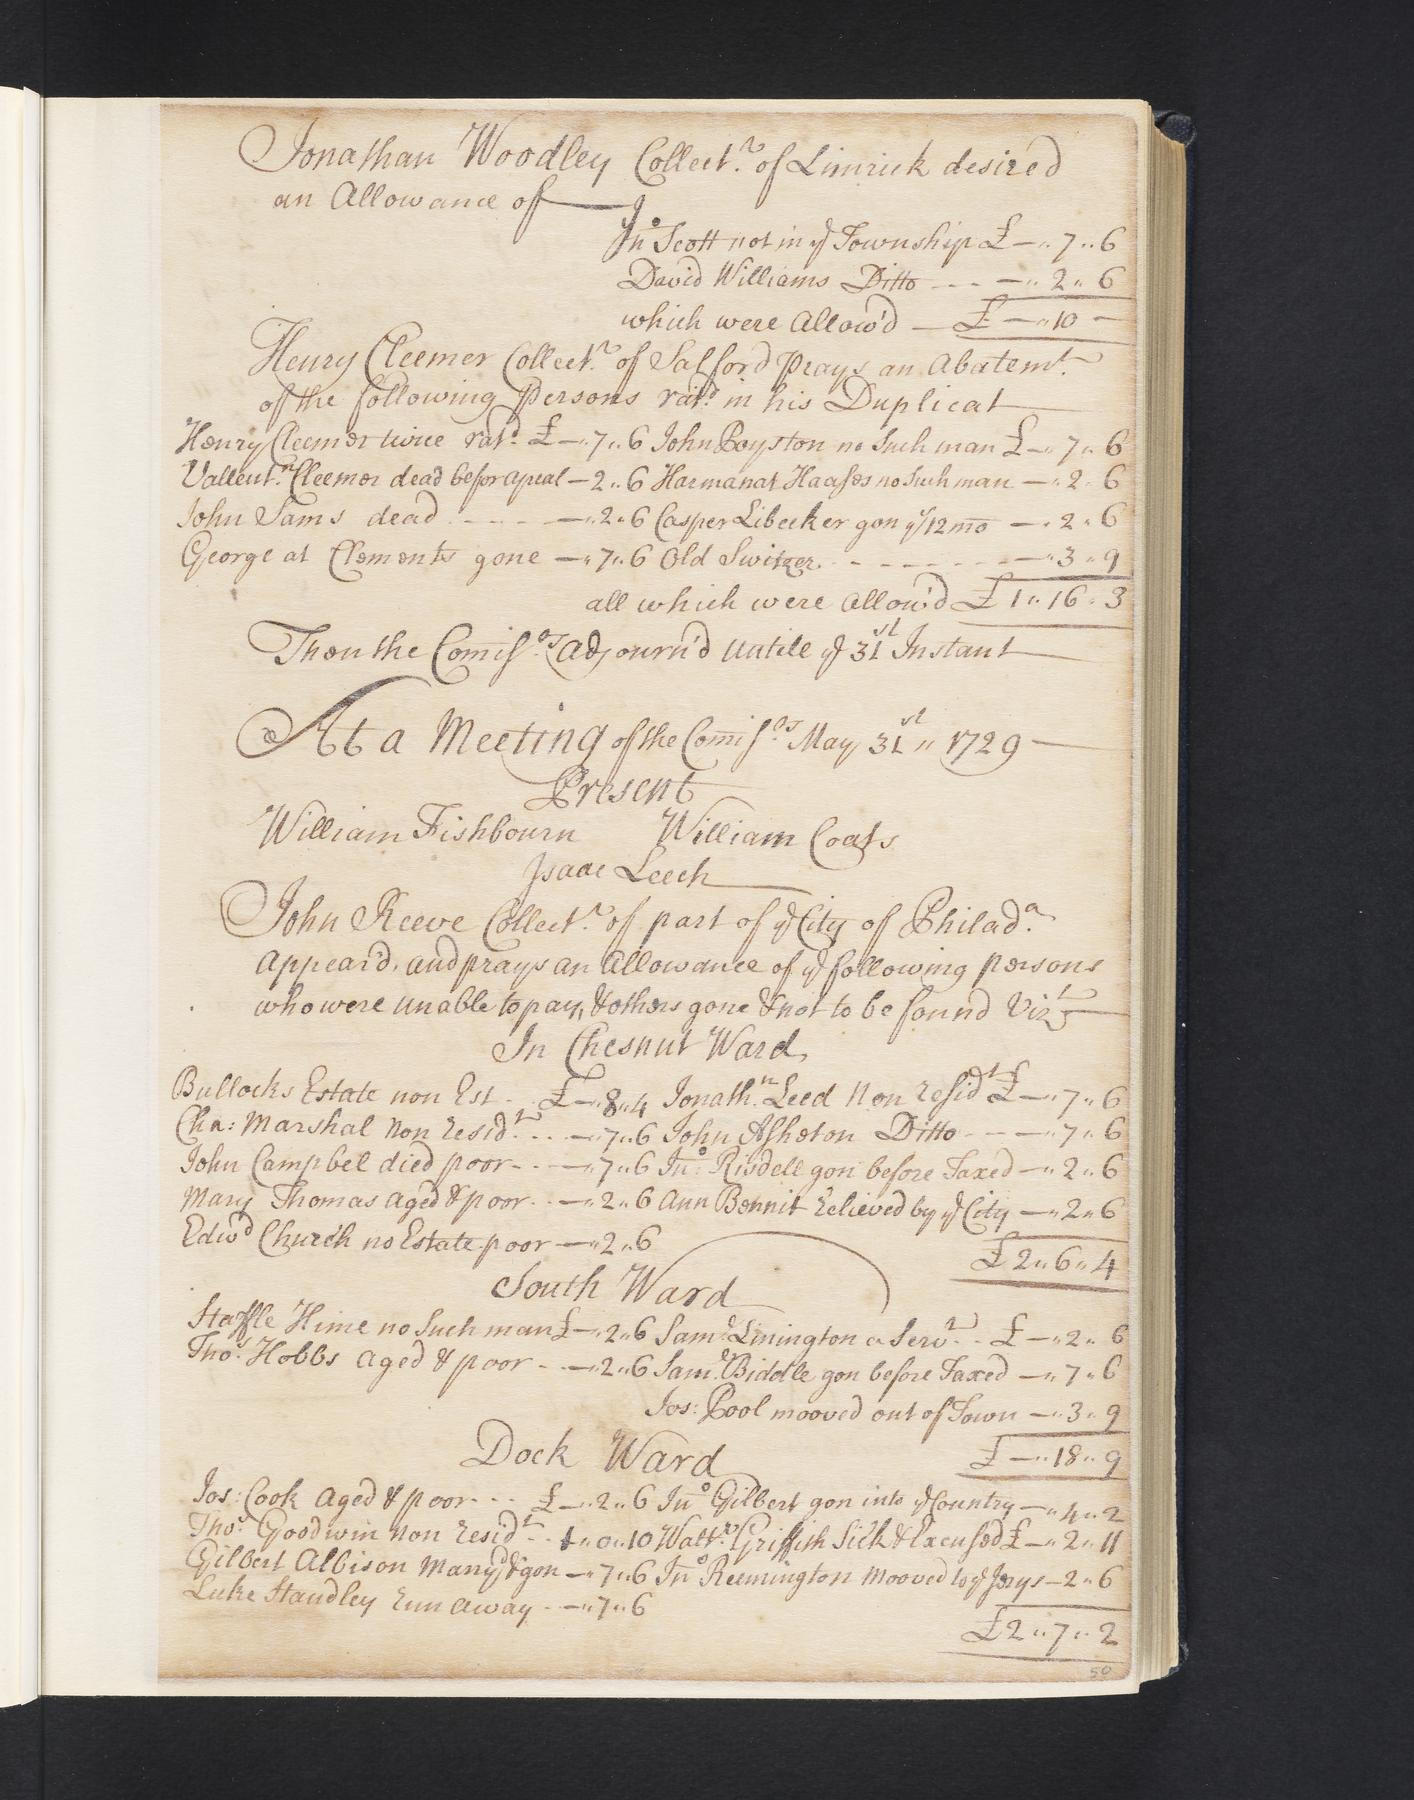 Jonathan Woodley Collect.r of Limrick desired
an Allowance of
Jno Scott not in ye Township £ — " 7 " 6
David Williams Ditto - - - — " 2 " 6
which were Allow'd — £ — " 10 —
Henry Cleemer Collect.r of Salford prays an Abatemt.
of the following Persons rat'd in his Duplicat
Henry Cleemer twice rat'd £ — " 7 " 6 John Boyston no Such man £ — " 7 " 6
Vallent.n Cleemer dead befor apeal — 2 " 6 Harmanat Haases no Such man — " 2 " 6
John Sams dead - - - - — " 2 " 6 Casper Libecker gon ye 12 mo — " 2 " 6
George at Clements gone — " 7 " 6 Old Switzer - - - - - - — " 3 " 9
all which were Allow'd £ 1 " 16 " 3
Then the Comiss.rs adjourn'd untile ye 31st Instant
At a Meeting of the Comiss.rs May 31st " 1729
Present
William Fishbourn William Coats
Isaac Leech
John Reeve Collect.r of part of ye City of Philad.a
Appear'd, and prays an Allowance of ye following persons
who were unable to pay, & others gone & not to be found Vizt
In Chesnut Ward
Bullocks Estate non Est - £ — " 8 " 4 Jonath.n Leed Non resid.t £ — " 7 " 6
Cha: Marshal Non resid.t - - — " 7 " 6 John Asheton Ditto - - — " 7 " 6
John Campbel died poor - - — " 7 " 6 Jno: Risdell gon before Taxed — " 2 " 6
Mary Thomas aged & poor - - — " 2 " 6 Ann Bennit relieved by ye City — " 2 " 6
Edwd Church no Estate poor — " 2 " 6
£ 2 " 6 " 4
South Ward
Staffle Hime no Such man £ — " 2 " 6 Sam.l Linington a Serv.t - - £ — " 2 " 6
Tho.s Hobbs aged & poor - - — " 2 " 6 Sam.l Biddle gon before Taxed — " 7 " 6
Jos: Pool mooved out of Town — " 3 " 9
£ — " 18 " 9
Dock Ward
Jos: Cook aged & poor - - - £ — " 2 " 6 Jno Gilbert gon into ye Country — " 4 " 2
Tho.s Goodwin non resid.t - - 1 " 0 " 10 Walt.r Griffith Sick & Excused £ — " 2 " 11
Gilbert Albison Marryd & gon — " 7 " 6 Jno Reemington Mooved to ye Jerys — 2 " 6
Luke Standley run away - - — " 7 " 6
£ 2 " 7 " 2
50